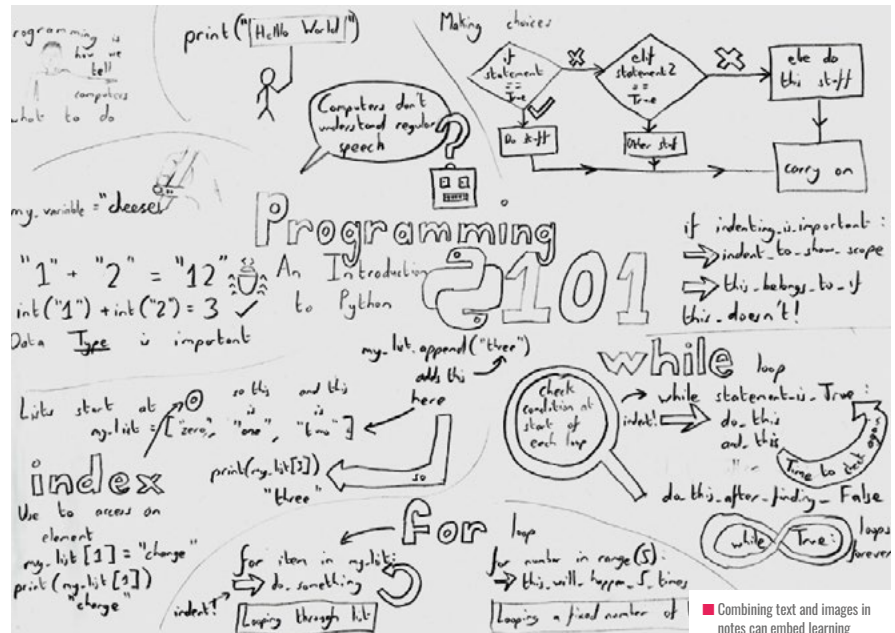 rogramming is
how we
tell
computers
what to do
print("Hello World")
Computers don't
understand regular
speech
?
Making choices
if
statement
==
True
elif
statement2
==
True
else do
this stuff
Do stuff
Other stuff
carry on
my_variable = "cheese"
"1" + "2" = "12"
int("1") + int("2") = 3
Data Type is important
Programming
101
An Introduction
to Python
if indenting_is_important:
indent_to_show_scope
this_belongs_to_if
this_doesn't!
my_list.append("three")
adds this
here
Lists start at 0
so this is
and this is
my_list = ["zero", "one", "two"]
so
print(my_list[3])
"three"
index
Use to access an
element
my_list[1] = "change"
print(my_list[1])
"change"
while loop
check
condition at
start of
each loop
while statement_is_True:
indent!
do_this
and_this
Time to check again
do_this_after_finding_False
while True:
loops
forever
for loop
for item in my_list:
indent!
do_something
Looping through list
for number in range(5):
this_will_happen_5_times
Looping a fixed number of
Combining text and images in
notes can embed learning